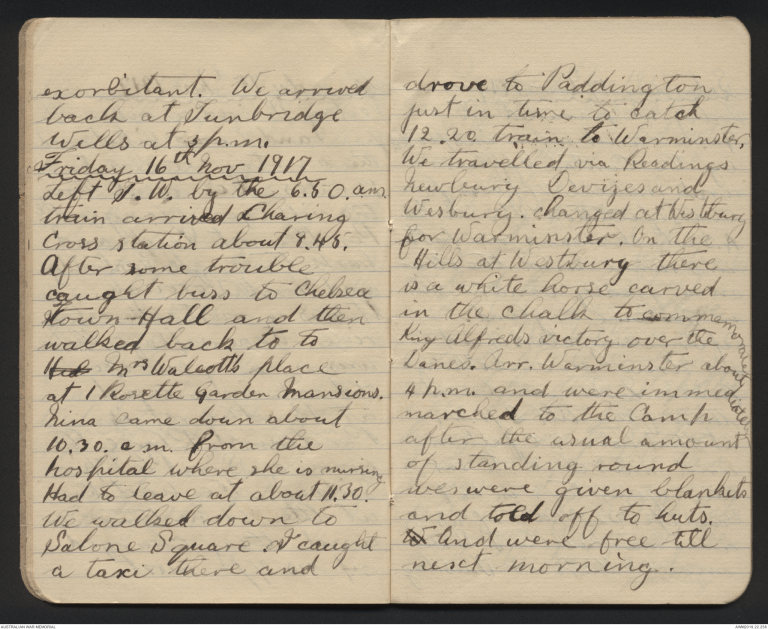 exorbitant. We arrived
back at Tunbridge
Wells at 9 p.m.
Friday 16th Nov 1917
Left T. W. by the 6.50. am
train arrived Charing
Cross station about 8.45.
After some trouble
caught buss to Chelsea
Town-Hall and then
walked back to to
Mrs Walcotts place
at 1 Rosette Garden Mansions.
Nina came down about
10.30. a m. from the
hospital where she is nursing
Had to leave at about 11.30.
We walked down to
Salone Square. & caught
a taxi there and
drove to Paddington
just in time to catch
12.20 train to Warminster.
We travelled via Readings
Newbury Devizes and
Wesbury. changed at Westbury
for Warminster. On the
Hills at Westbury there
is a white horse carved
in the chalk to commemorate
King Alfreds victory over the
Danes. Arr. Warminster about
4 p.m. and were immediately
marched to the Camp
after the usual amount
of standing round
we were given blankets
and told off to huts.
And were free till
next morning.
AUSTRALIAN WAR MEMORIAL